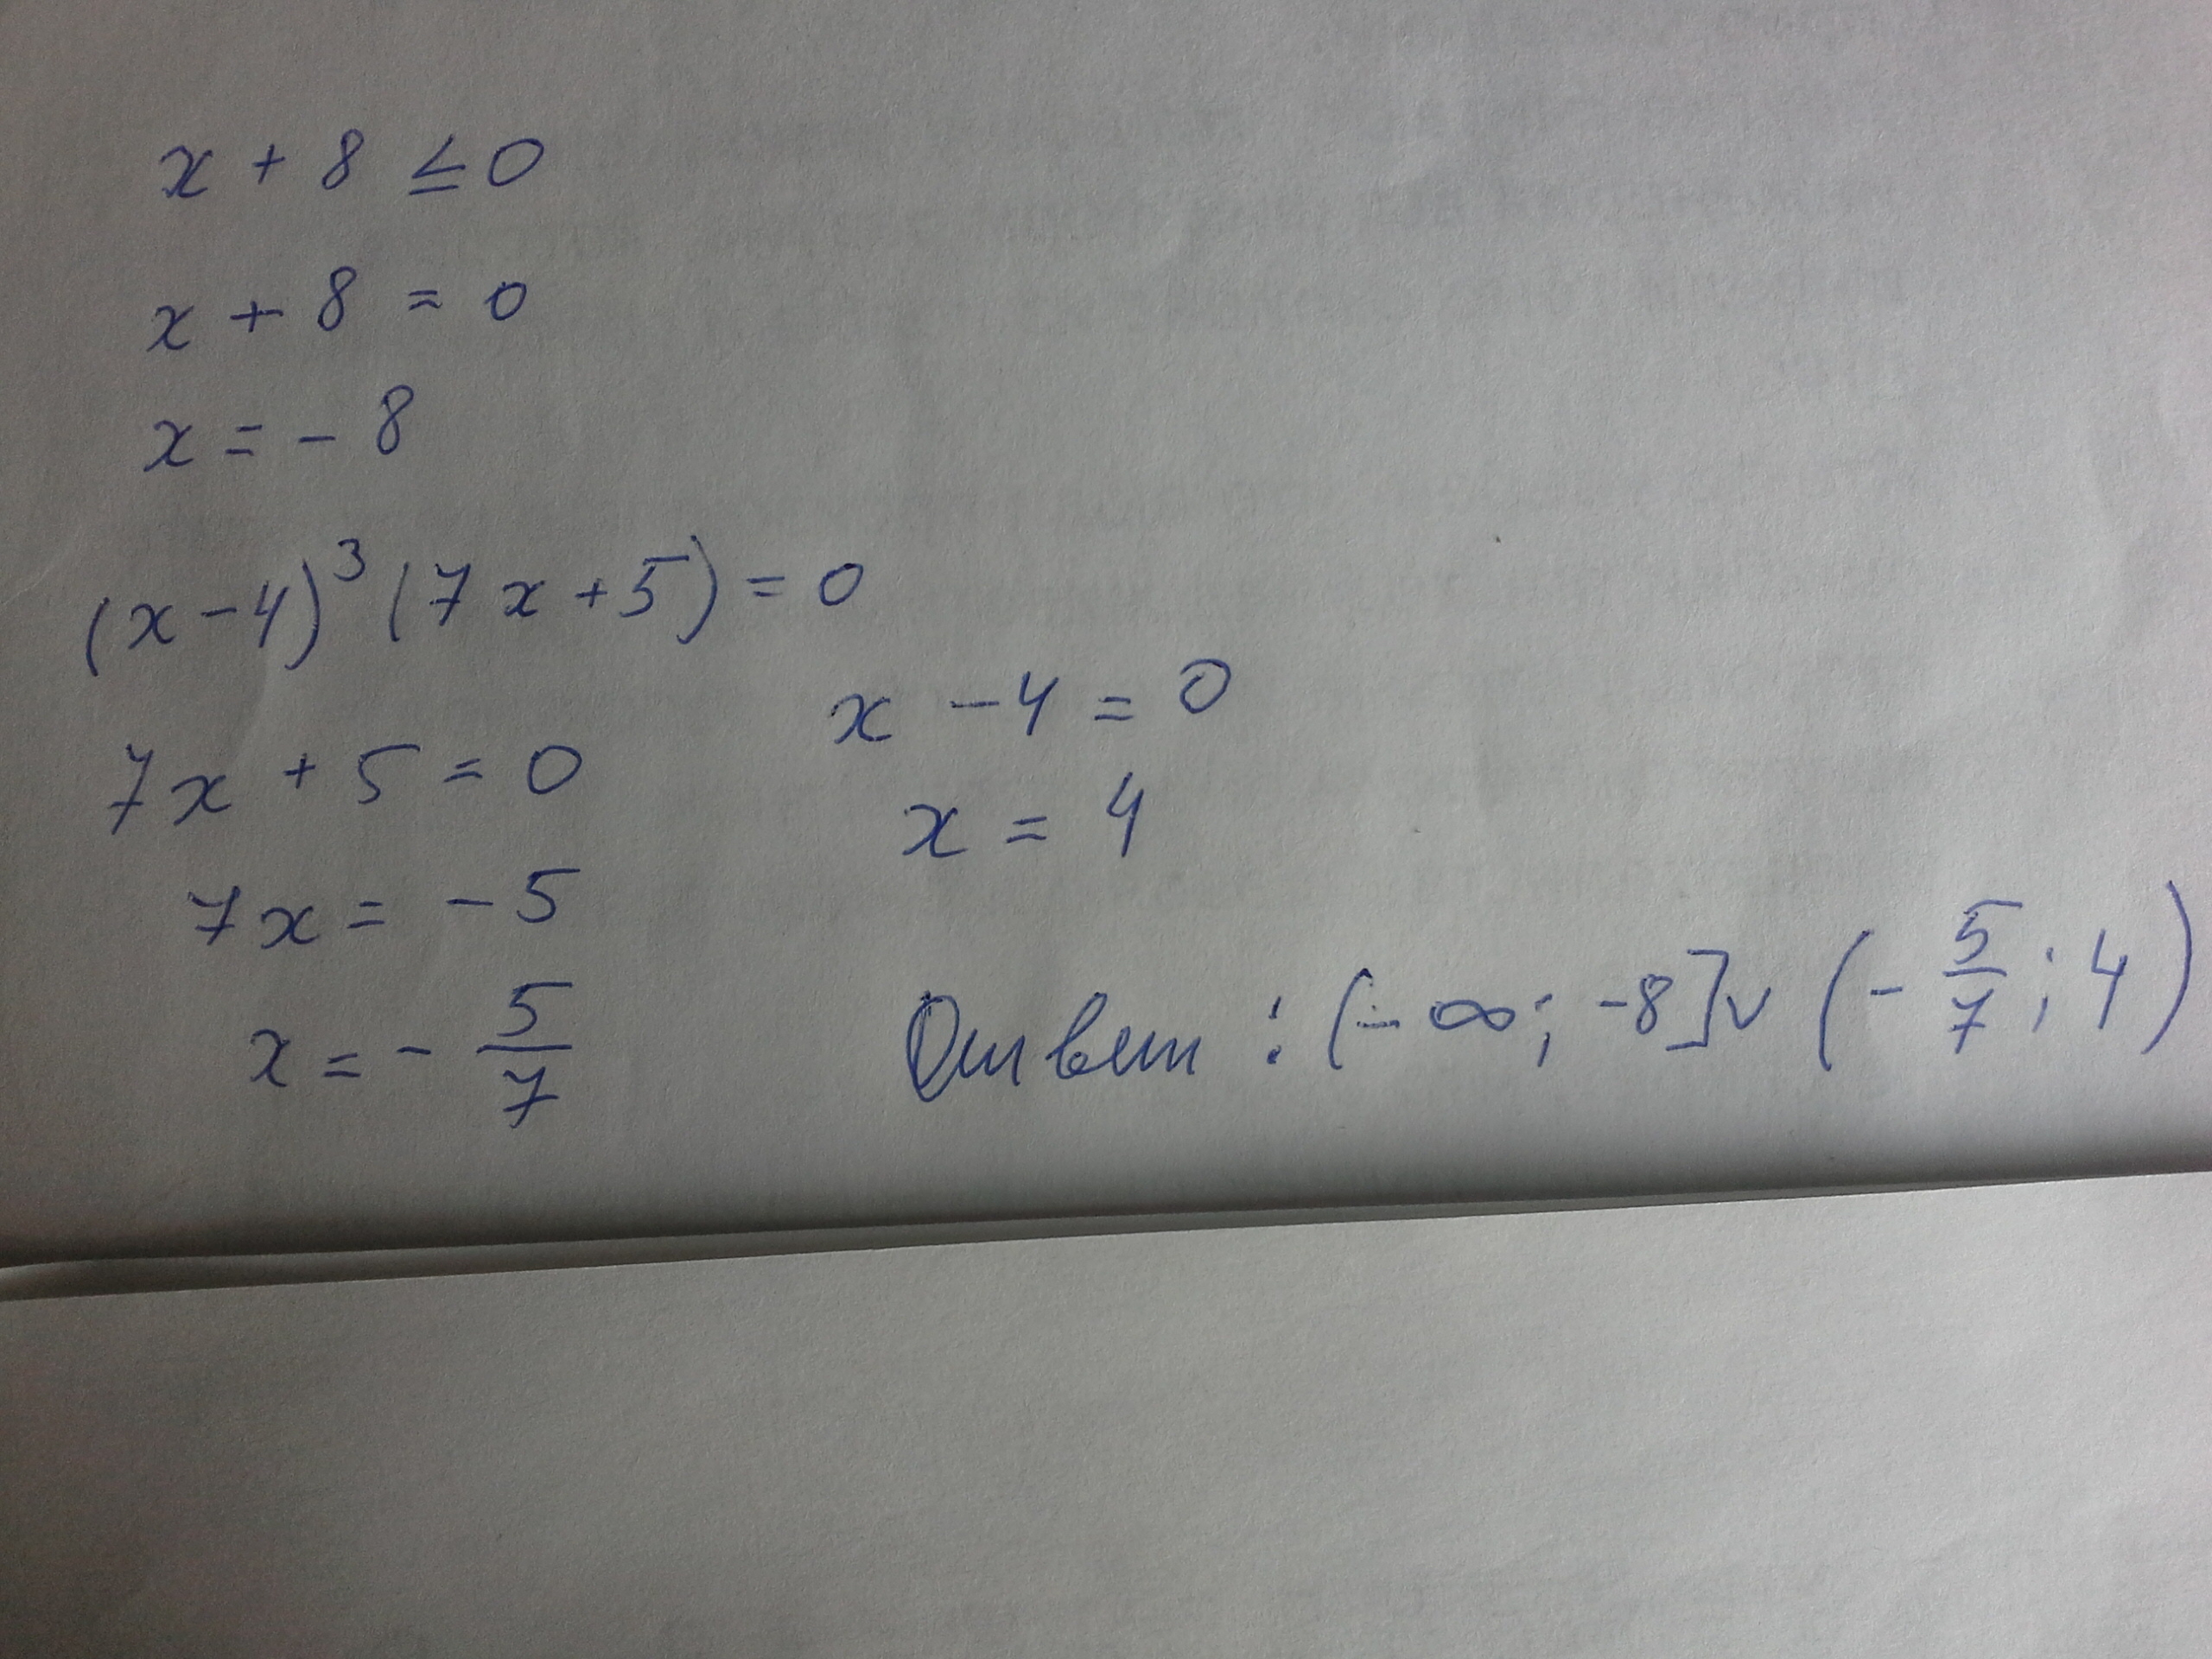 x + 8 ≤ 0
x + 8 = 0
x = - 8
(x - 4)³ (7x + 5) = 0
7x + 5 = 0
7x = - 5
x = - 5/7
x - 4 = 0
x = 4
Ответ : (- ∞; -8] ∨ (- 5/7 ; 4)